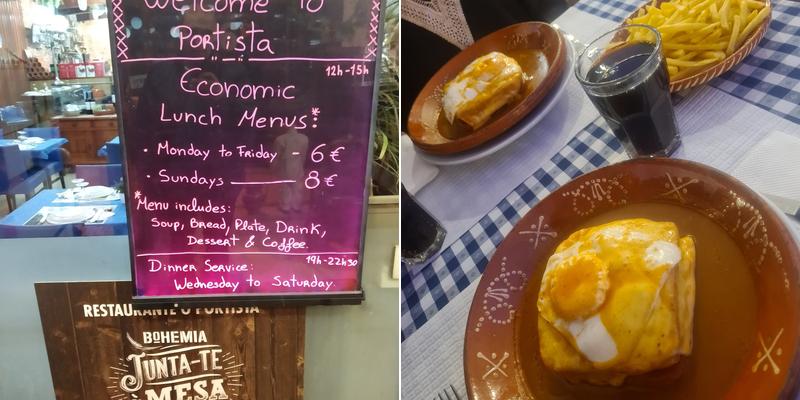 Welcome to
Portista
12h-15h
Economic
Lunch Menus:*
• Monday to Friday - 6€
• Sundays — 8€
*Menu includes:
Soup, Bread, Plate, Drink,
Dessert & Coffee.
19h-22h30
Dinner Service:
Wednesday to Saturday.
RESTAURANTE O PORTISTA
BOHEMIA
JUNTA-TE
À MESA